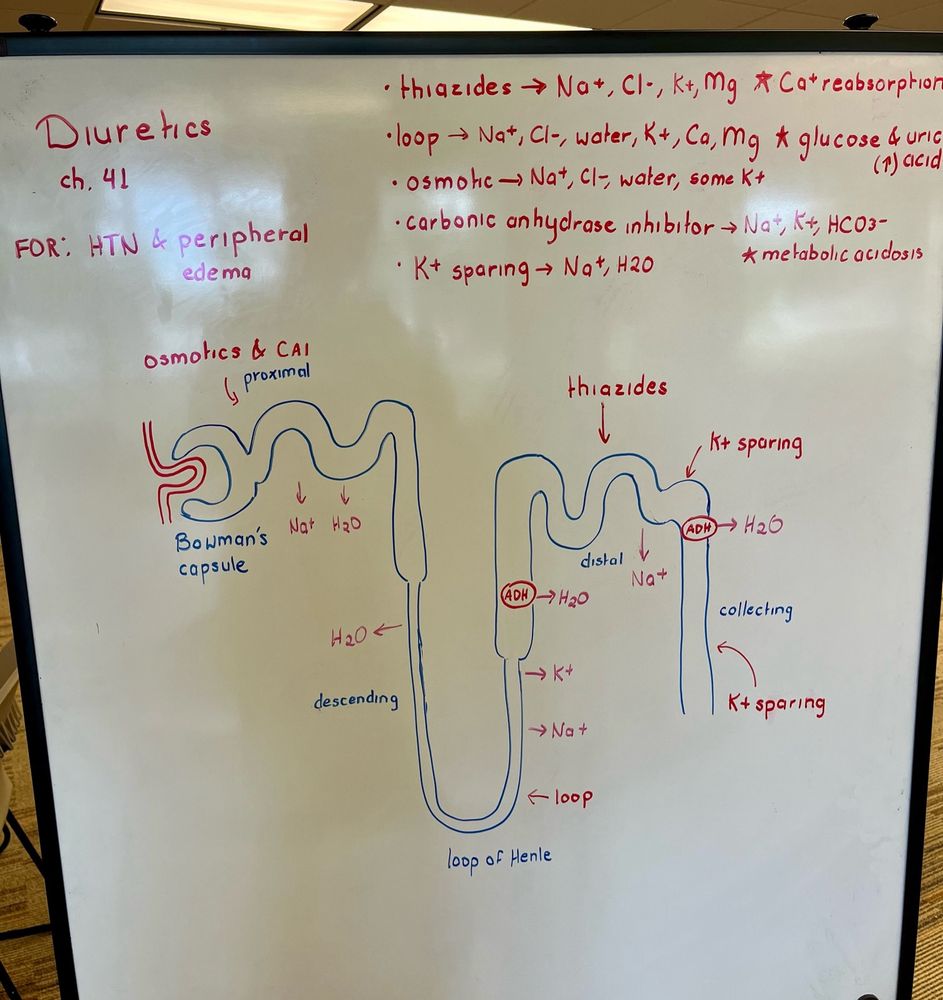 Diuretics
ch. 41
FOR: HTN & peripheral
edema
• thiazides → Na+, Cl-, K+, Mg ★ Ca+ reabsorption
• loop → Na+, Cl-, water, K+, Ca, Mg ★ glucose & uric
(↑) acid
• osmotic → Na+, Cl-, water, some K+
• carbonic anhydrase inhibitor → Na+, K+, HCO3-
★ metabolic acidosis
• K+ sparing → Na+, H2O
osmotics & CAI
proximal
Bowman's
capsule
Na+ H2O
H2O
descending
loop of Henle
loop
Na+
K+
ADH → H2O
thiazides
distal
Na+
K+ sparing
ADH → H2O
collecting
K+ sparing